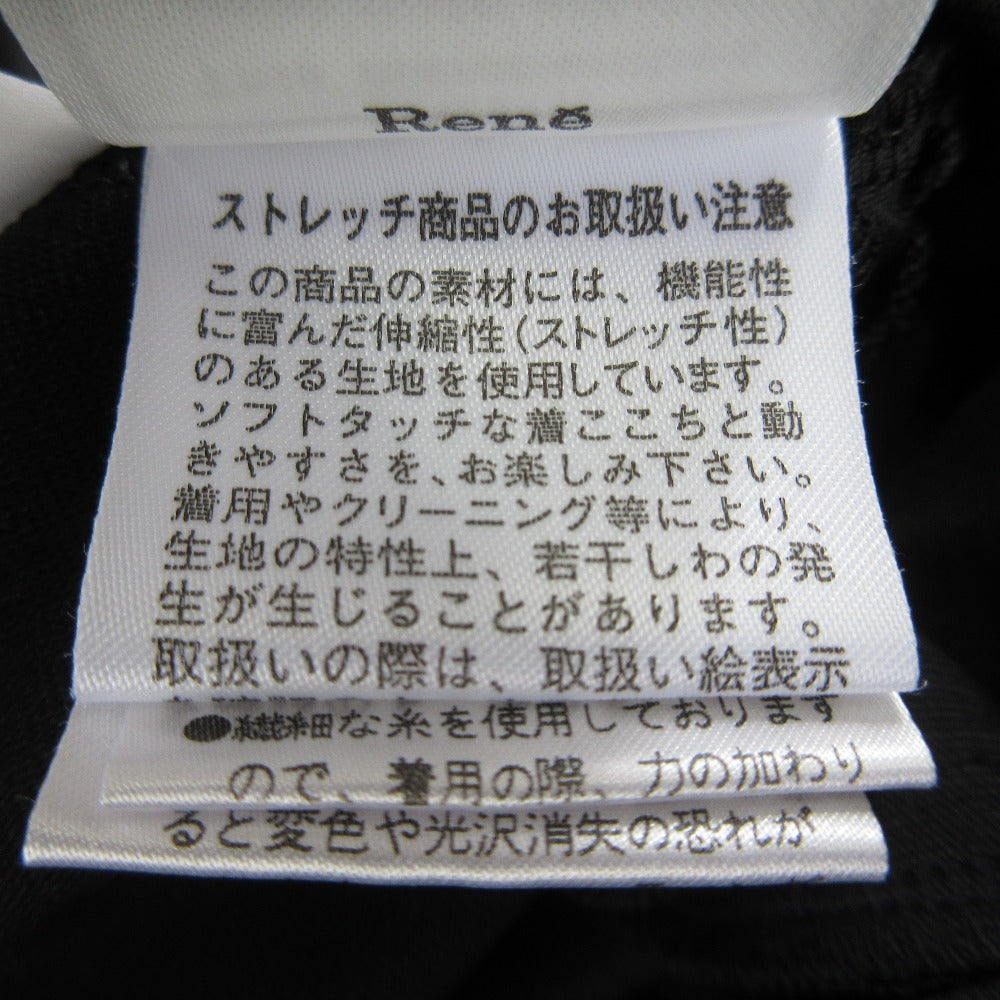 René
ストレッチ商品のお取扱い注意
この商品の素材には、機能性
に富んだ伸縮性(ストレッチ性)
のある生地を使用しています。
ソフトタッチな着ここちと動
きやすさを、お楽しみ下さい。
着用やクリーニング等により、
生地の特性上、若干しわの発
生が生じることがあります。
取扱いの際は、取扱い絵表示
●繊細な糸を使用しております
ので、着用の際、力の加わり
ると変色や光沢消失の恐れが